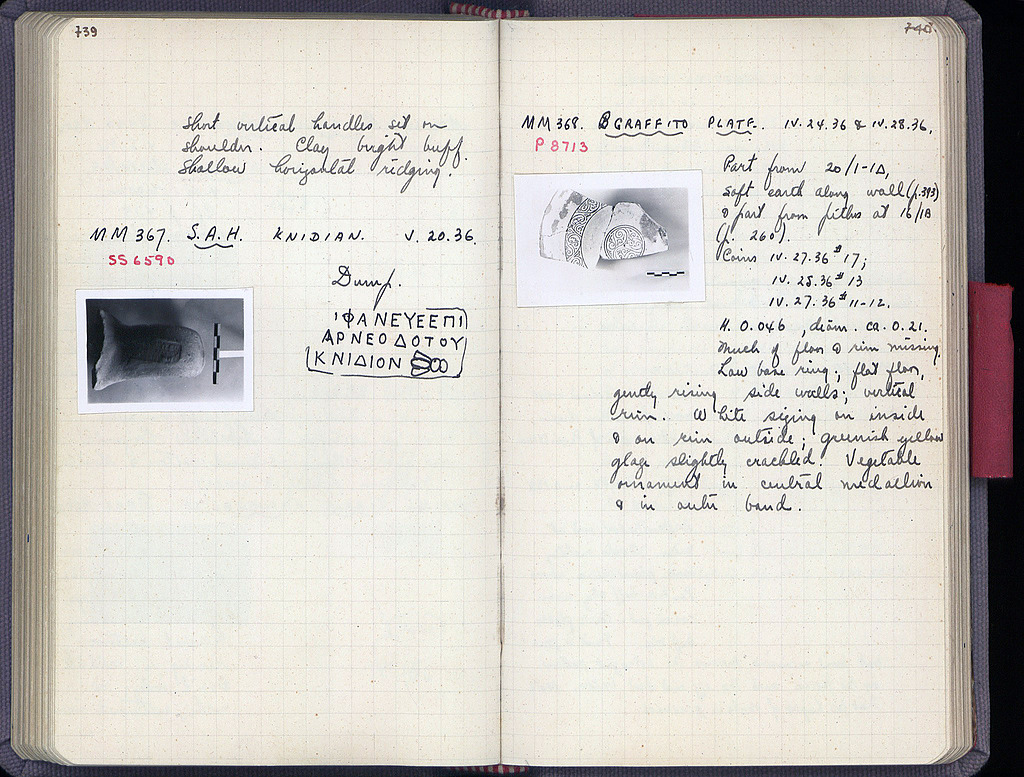 739
short vertical handles set on
shoulder. Clay bright buff.
Shallow horizontal ridging.
MM 367. S.A.H. KNIDIAN. V.20.36.
SS 6590
Dump.
ΙΦΑΝΕΥΕΕΠΙ
ΑΡΝΕΟΔΟΤΟΥ
ΚΝΙΔΙΟΝ
740
MM 368. B GRAFFITO PLATE. IV.24.36 & IV.28.36.
P 8713
Part from 20/1-ΙΔ,
soft earth along wall (p.393)
& part from pithos at 16/ΙΒ
(p. 260).
Coins IV.27.36 # 17;
IV.28.36 # 13
IV.27.36 # 11-12.
H. 0.046, diam. ca. 0.21.
Much of floor & rim missing.
Low base ring; flat floor,
gently rising side walls; vertical
rim. White sizing on inside
& on rim outside; greenish yellow
glaze slightly crackled. Vegetable
ornament in central medallion
& in outer band.